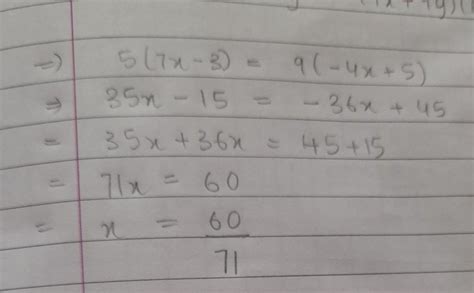 ⇒ 5(7x - 3) = 9(-4x + 5)
⇒ 35x - 15 = -36x + 45
= 35x + 36x = 45 + 15
= 71x = 60
= x = 60/71